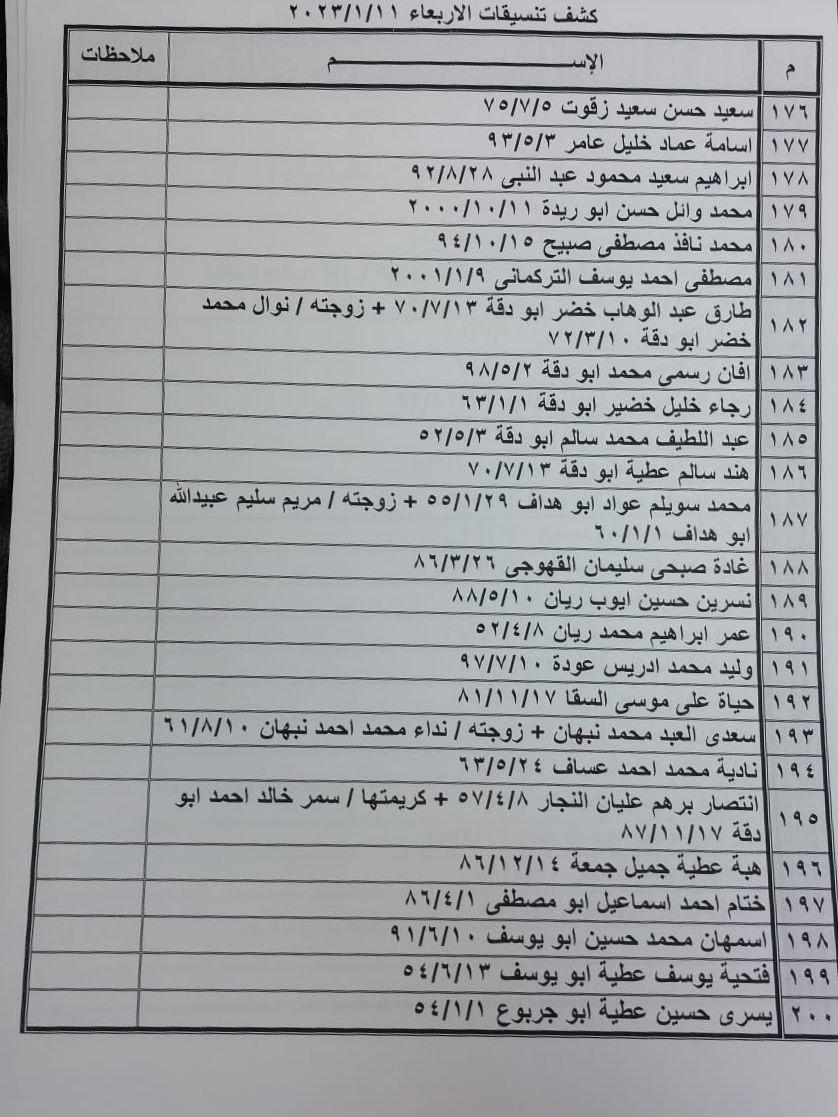 كشف تنسيقات الاربعاء ٢٠٢٣/١/١١
م الإســـــــــم ملاحظات
١٧٦ سعيد حسن سعيد زقوت ٧٥/٧/٥
١٧٧ اسامة عماد خليل عامر ٩٣/٥/٣
١٧٨ ابراهيم سعيد محمود عبد النبى ٩٢/٨/٢٨
١٧٩ محمد وائل حسن ابو ريدة ٢٠٠٠/١٠/١١
١٨٠ محمد نافذ مصطفى صبيح ٩٤/١٠/١٥
١٨١ مصطفى احمد يوسف التركمانى ٢٠٠١/١/٩
١٨٢ طارق عبد الوهاب خضر ابو دقة ٧٠/٧/١٣ + زوجته / نوال محمد
خضر ابو دقة ٧٢/٣/١٠
١٨٣ افان رسمى محمد ابو دقة ٩٨/٥/٢
١٨٤ رجاء خليل خضير ابو دقة ٦٣/١/١
١٨٥ عبد اللطيف محمد سالم ابو دقة ٥٢/٥/٣
١٨٦ هند سالم عطية ابو دقة ٧٠/٧/١٣
١٨٧ محمد سويلم عواد ابو هداف ٥٥/١/٢٩ + زوجته / مريم سليم عبيدالله
ابو هداف ٦٠/١/١
١٨٨ غادة صبحى سليمان القهوجى ٨٦/٣/٢٦
١٨٩ نسرين حسين ايوب ريان ٨٨/٥/١٠
١٩٠ عمر ابراهيم محمد ريان ٥٢/٤/٨
١٩١ وليد محمد ادريس عودة ٩٧/٧/١٠
١٩٢ حياة على موسى السقا ٨١/١١/١٧
١٩٣ سعدى العبد محمد نبهان + زوجته / نداء محمد احمد نبهان ٦١/٨/١٠
١٩٤ نادية محمد احمد عساف ٦٣/٥/٢٤
١٩٥ انتصار برهم عليان النجار ٥٧/٤/٨ + كريمتها / سمر خالد احمد ابو
دقة ٨٧/١١/١٧
١٩٦ هبة عطية جميل جمعة ٨٦/١٢/١٤
١٩٧ ختام احمد اسماعيل ابو مصطفى ٨٦/٤/١
١٩٨ اسمهان محمد حسين ابو يوسف ٩١/٦/١٠
١٩٩ فتحية يوسف عطية ابو يوسف ٥٤/٦/١٣
٢٠٠ يسرى حسين عطية ابو جربوع ٥٤/١/١